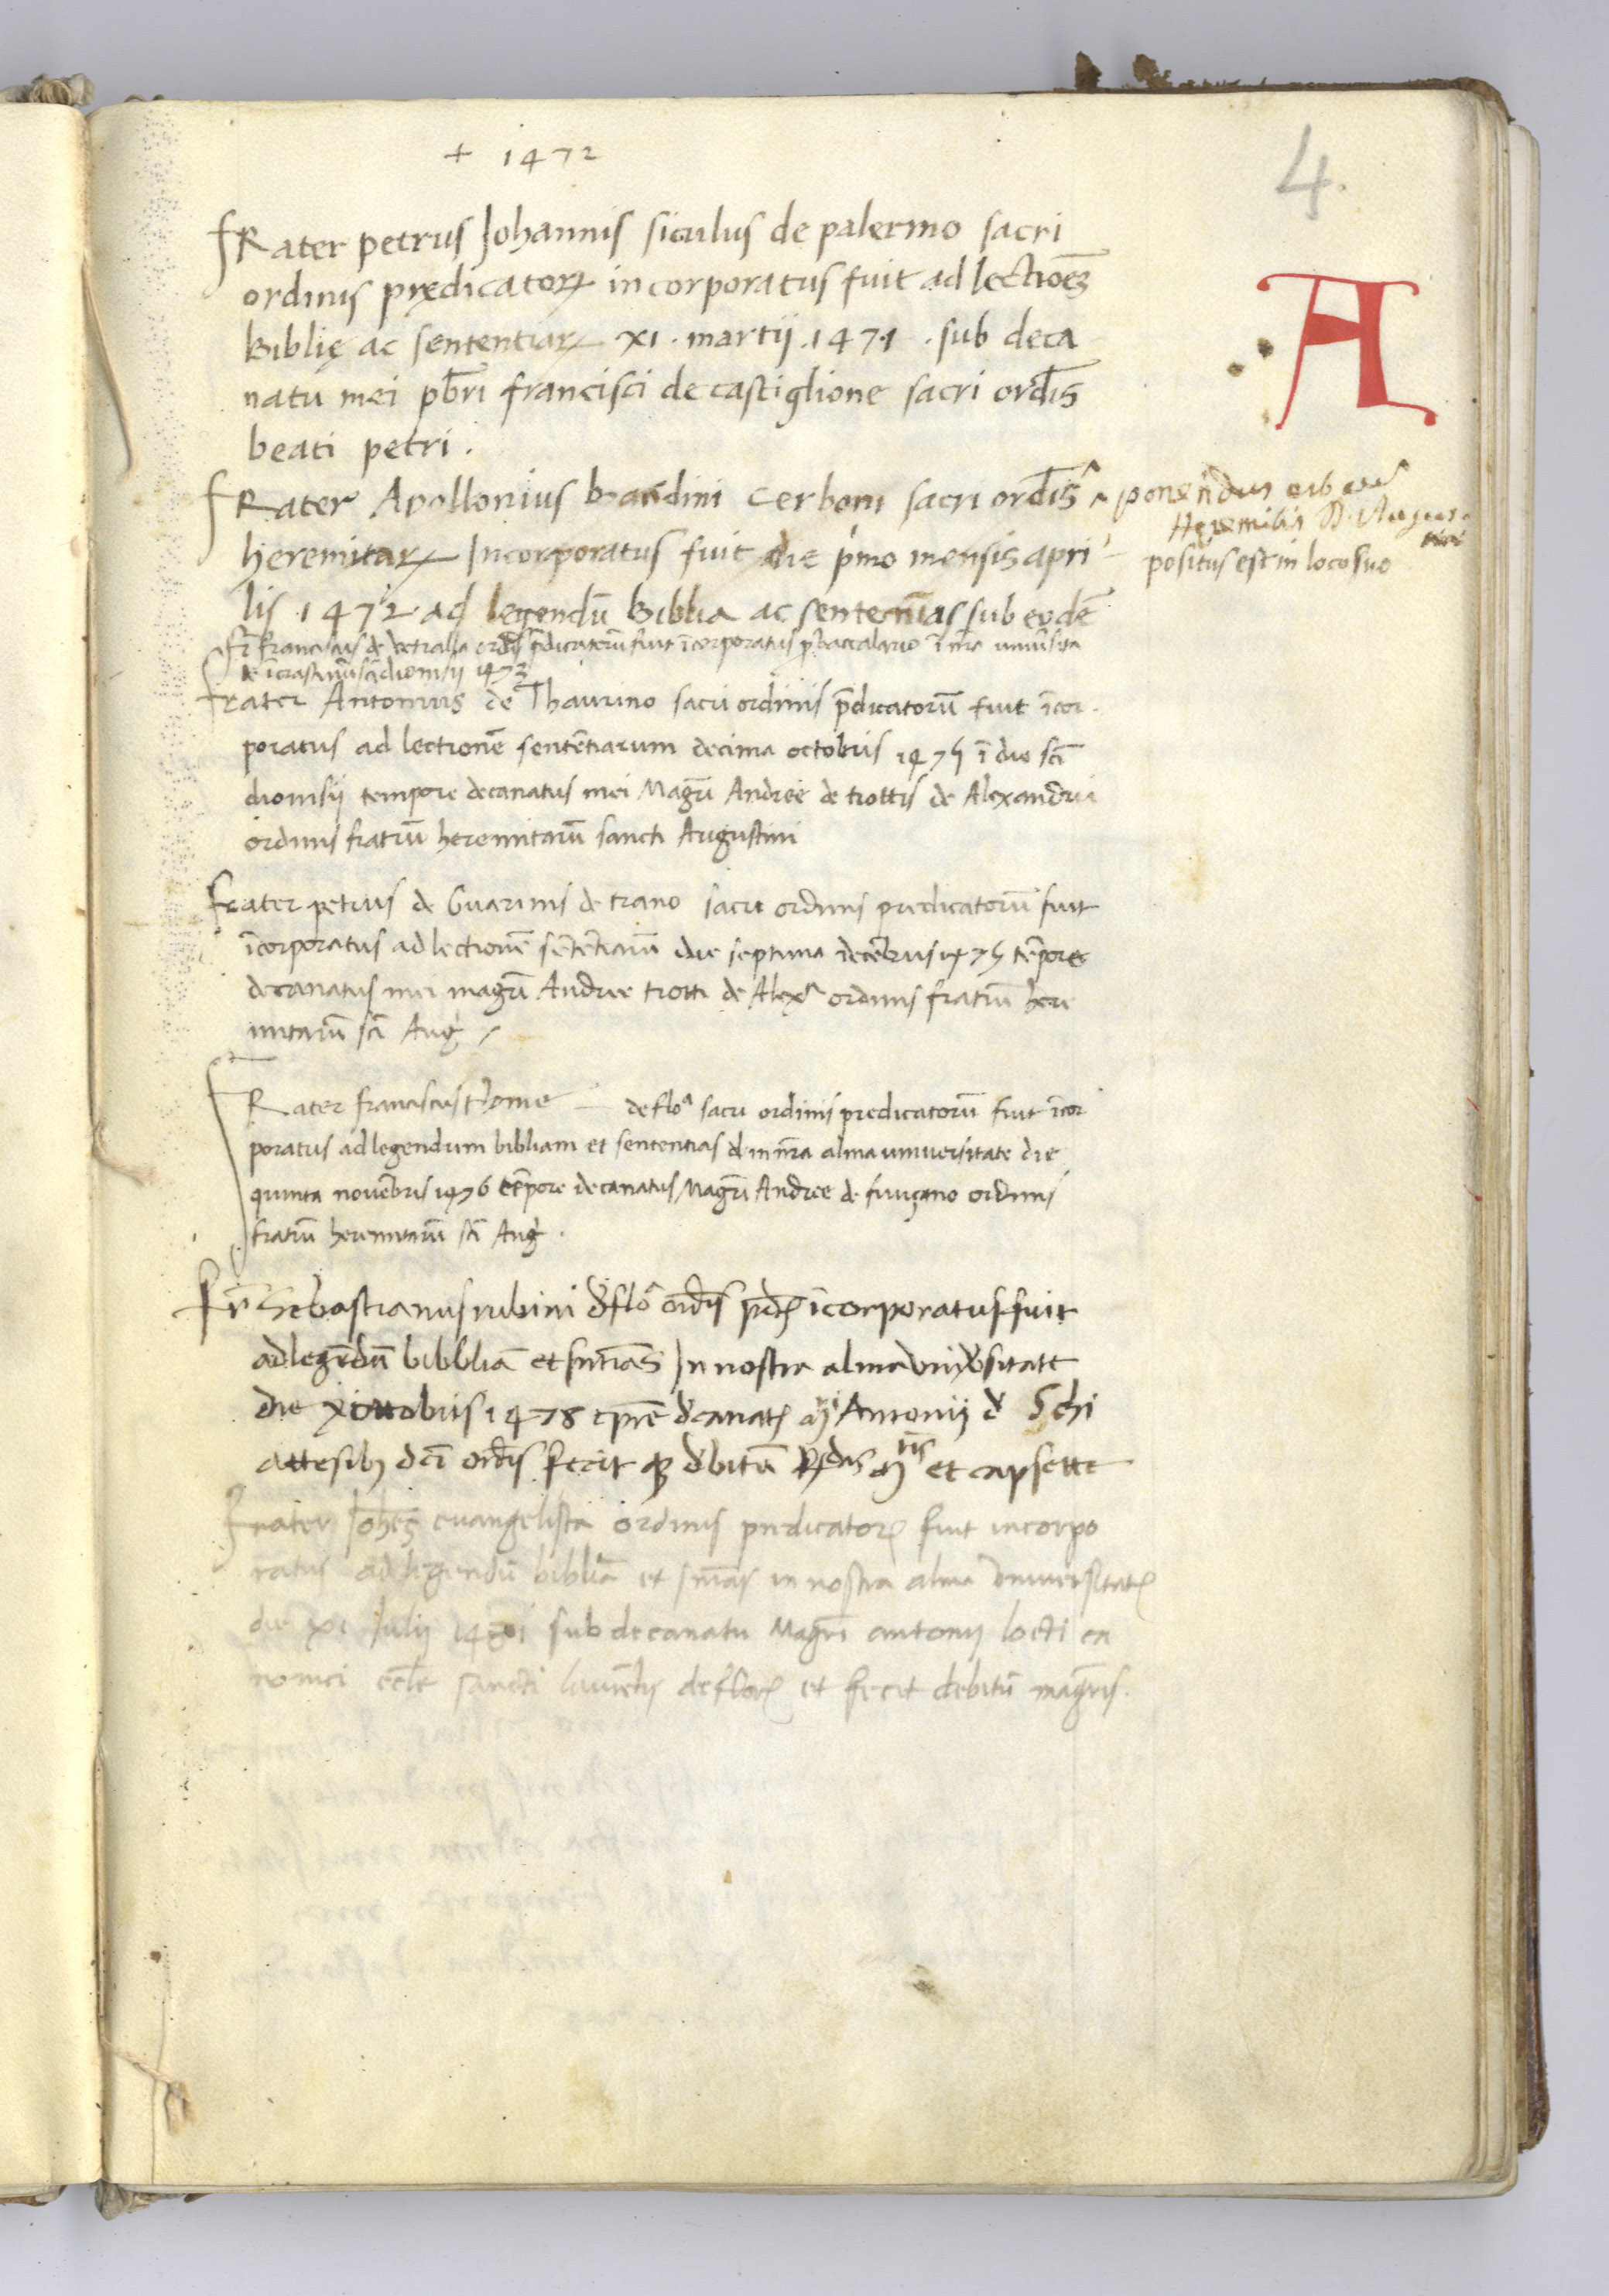 + 1472
4.
A
FRater petrus Johannis siculus de palermo sacri
ordinis prędicatorꝝ incorporatus fuit ad lectionē
Biblię ac sententiarꝝ xi. martii .1471. sub deca
natu mei pb̄ri francisci de castiglione sacri ord̄is
beati petri.
FRater Apollonius bandini Cerboni sacri ord̄is
ponendus
Heremitis D. Augus
heremitarꝝ Incorporatus fuit die p̄mo mensis apri
positus est in loco suo
lis .1472. ad legendū Biblia ac sententias sub eodē
Fr̄ Franciscus de vetralla ord̄is p̄dicatorū fuit īcorporatus baccalario ī nr̄a universita
te dionisii 1473
Frater Antonius de Thaurino sacri ordinis p̄dicatorū fuit īcor
poratus ad lectionē sentētiarum decima octobris 1475 ī die sc̄i
dionisii tempore decanatus mei Magr̄i Andree de trottis de Alexandria
ordinis fratrū heremitarū sancti Augustini
Frater petrus de Guarinis de trano sacri ordinis predicatorū fuit
īcorporatus ad lectionē sentētiarū die septima decēbris 1475 tēpore
decanatus mei magr̄i Andree trotti de Alexa ordinis fratrū here
mitarū sc̄i Aug
FRater franciscus thome de floa sacri ordinis predicatorū fuit īcor
poratus ad legendum bibliam et sententias in nr̄a alma universitate die
quinta novēbris 1476 tēpore decanatus Magr̄i Andree de fivizano ordinis
fratrū heremitarū sc̄i Aug.
Fr̄ Sebastianus rubini d flo ord̄is īcorporatus fuit
ad legēdū bibbliā et sn̄tias In nostra alma universitate
die xi ottobris 1478 tp̄re decanatꝰ Antonij d Schi
ord̄is fecit debitū et capsette
Frater Johēs evangelista ordinis predicator fuit incorpo
ratus ad legendū bibliā et sn̄ias in nostra alma universitate
die xi Julii 1481 sub decanatu Magr̄i antonij locti ca
nonici eccl̄e sancti laurētij de flor et fecit debitū magr̄is.